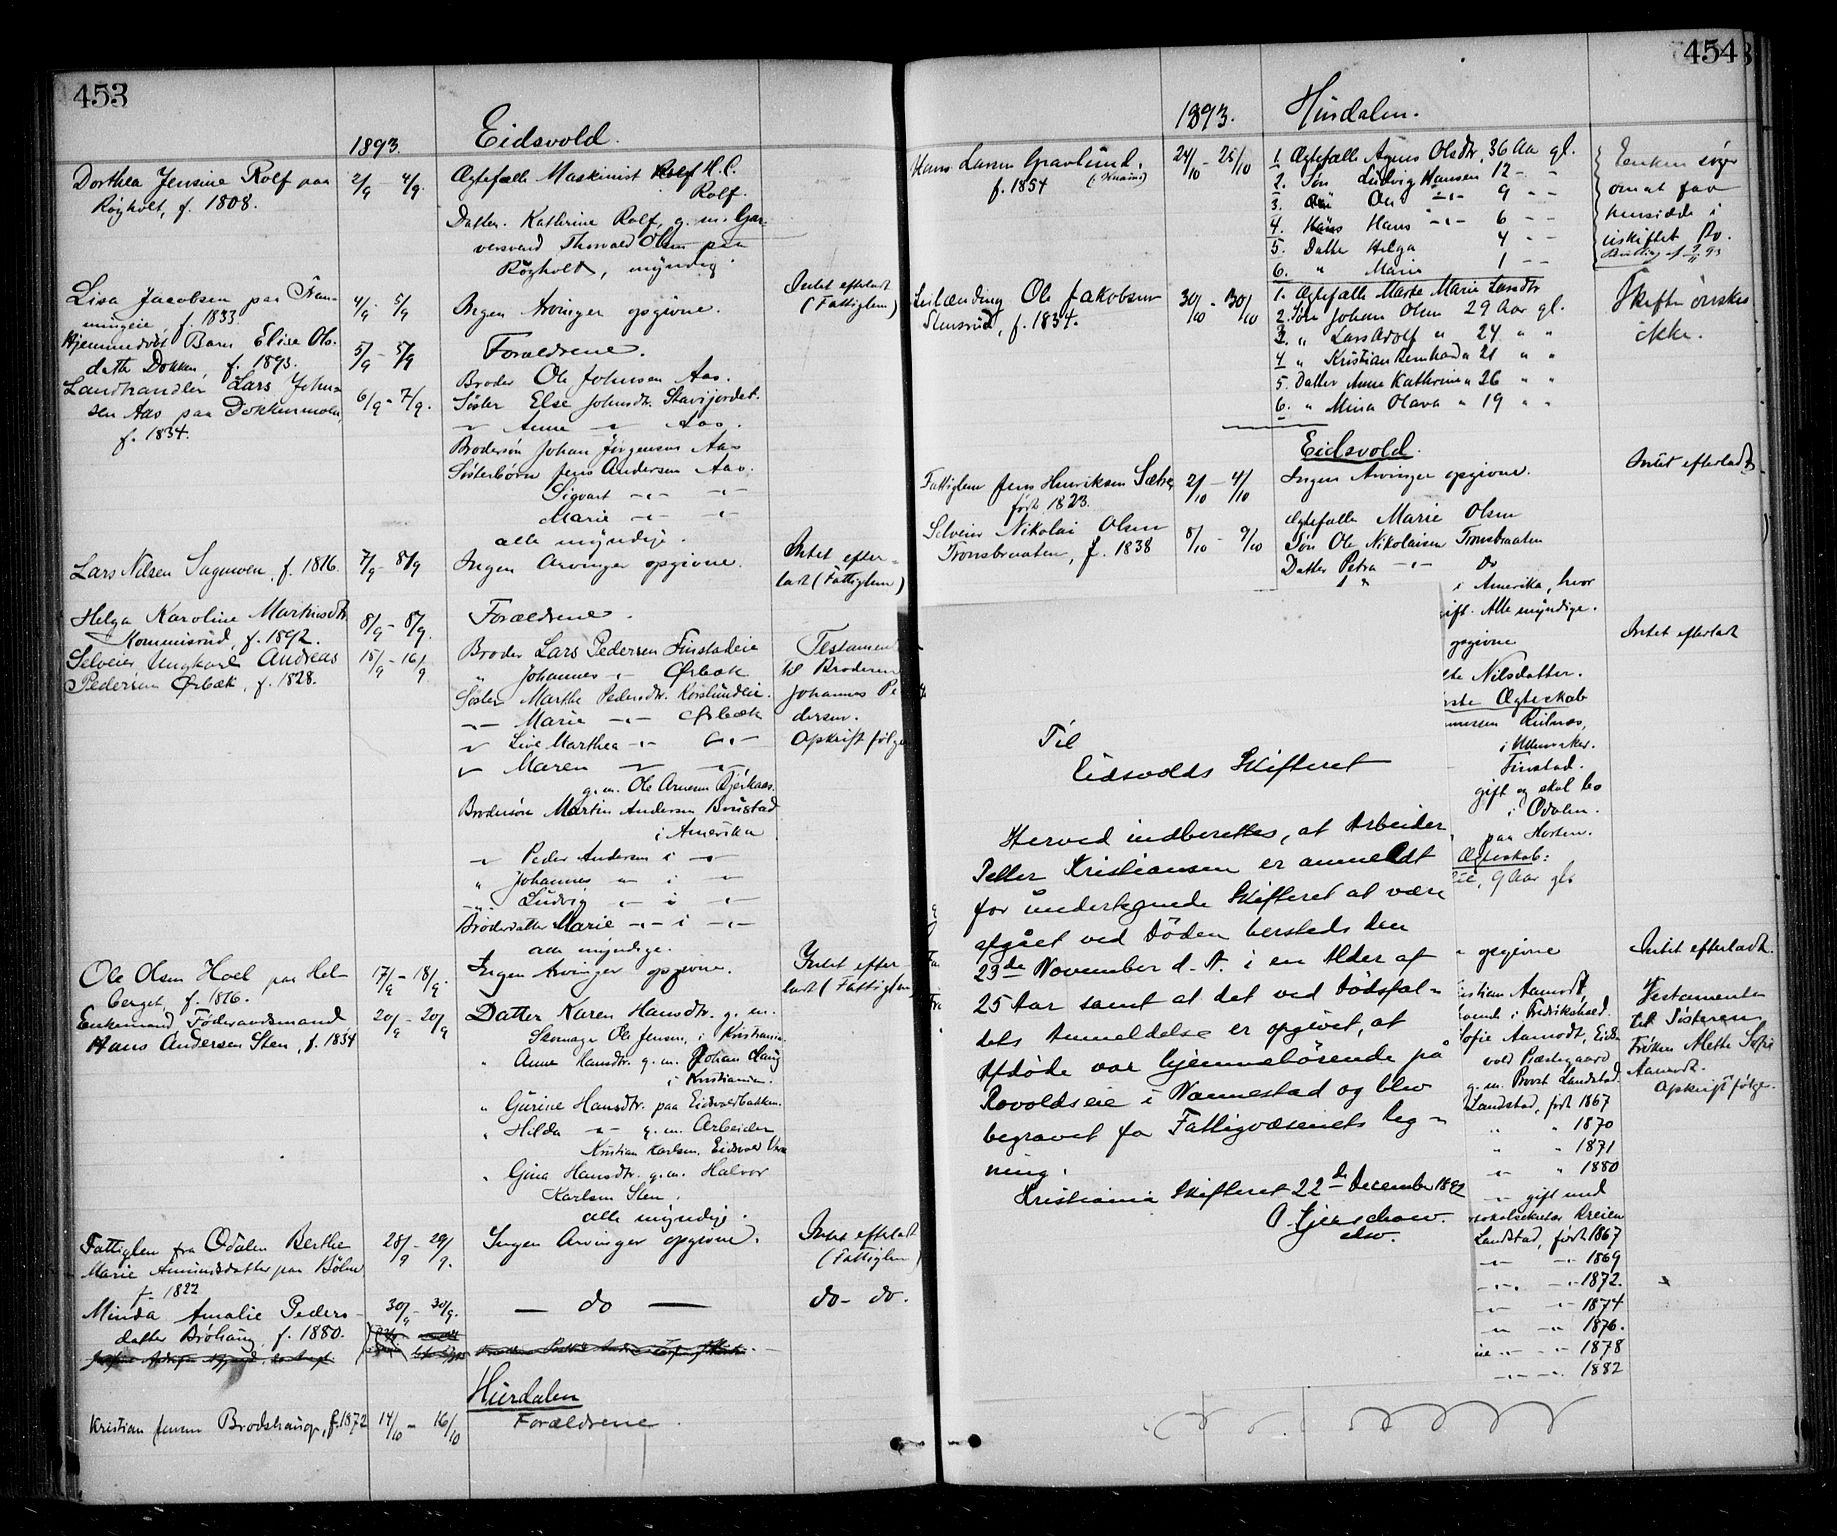 453
1893.
Eidsvold.
Dorthea Jensine Rolf paa
Røgholt, f. 1808.
2/9 - 4/9.
Ægtefælle Maskinist Rolf H. C.
Rolf.
Datter. Kathrine Rolf, g. m. Gar-
versvend Thorvald Olsen paa
Røgholt, myndig.
Lisa Jacobsen paa
f. 1833.
4/9 - 5/9
Ingen Arvinger opgivne.
Intet efterladt
(Fattiglem)
Hjemmedøbt Barn Elise Ols-
datt. Dokken, f. 1893.
5/9 - 5/9
Forældrene.
Landhandler Lars John-
sen Aas paa Dokkenmoen,
f. 1834.
6/9 - 7/9.
Broder Ole Johnsen Aas.
Søster Else Johnsdtr. Skavijordet.
" Anne " Aas.
Brodersøn Johan Jørgensen Aas
Søsterbørn Jens Andersen Aas.
Sigvart -"- -"-
Marie -"- -"-
alle myndige.
Lars Nilsen Sagmoen, f. 1816.
7/9 - 8/9
Ingen Arvinger opgivne.
Intet efter-
ladt (Fattiglem)
Helga Karoline Martinsdtr.
Kommisrud, f. 1892.
8/9 - 8/9.
Forældrene.
Selveier Ungkarl Andreas
Pedersen Ørbæk, f. 1828.
15/9 - 16/9
Broder Lars Pedersen Finstadeie
" Johannes " Ørbæk
Søster Marthe Pedersdtr.
-"- Marie -"- Ørbæk
" Live Marthea -"- -"-
" Maren " -"-
g. m. Ole Arnesen
Brodersøn Martin Andersen
i Amerika
-"- Peder Andersen i -"-
" Johannes -"- i -"-
-"- Ludvig -"- i -"-
Broderdatter Marie -"- i -"-
alle myndige.
Testament
til Broderen
Johannes Pe-
dersen.
Afskrift følger
Ole Olsen Hoel paa Hel-
berget, f. 1816.
17/9 - 18/9.
Ingen Arvinger opgivne.
Intet efter
ladt (Fattiglem)
Enkemand Føderaadsmand
Hans Andersen Sten, f. 1834
20/9 - 20/9
Datter Karen Hansdtr. g. m.
Skomager Ole Jensen, i Kristiania.
" Anne Hansdtr. g. m. Johan Haug
i Kristiania.
" Gurine Hansdtr. paa Eidsvoldbakken.
" Hilda -"- g. m. Arbeider
Kristian Karlsen, Eidsvold Værk
" Gina Hansdtr. g. m. Halvor
Karlsen Sten.
alle myndige.
Fattiglem fra Odalen Berthe
Marie Amundsdatter paa Bøhn
f. 1822
28/9 - 29/9.
Ingen Arvinger opgivne.
Intet efterladt
(Fattiglem)
Minda Amalie Peders-
datter Brøhaug, f. 1880.
30/9 - 30/9.
— do —
do - do.
Hurdalen
Kristian Jensen Brodshaug, f. 1872
14/10 - 16/10
Forældrene.
454
1893.
Hurdalen.
Hans Larsen Gravlund.
f. 1854
24/10 - 25/10
1. Ægtefælle Agnes Olsdtr, 36 Aar gl.
2. Søn Ludvig Hansen 12 - -
3. Ole -"- 9 - -
4. Hans -"- 6 - -
5. Datter Helga 4 - -
6. " Marie 1 - -
Enken siger
omat faa
hensidde i
uskiftet Bo.
Inderlænding Ole Jakobsen
Stensrud, f. 1834.
30/10 - 30/10
1. Ægtefælle Marthe Marie Larsdtr
2. Søn Johan Olsen 29 Aar gl.
3. " Lars Adolf " 24 " "
4. " Kristian Bernhard " 21 " "
5. Datter Anne Kathrine " 26 " "
6. " Mina Olava " 19 " "
Skifte ønskes
ikke.
Eidsvold.
Fattiglem Jens Henriksen Sætre,
født 1823.
2/10 - 4/10
Ingen Arvinger opgivne.
Intet efterladt
Selveier Nikolai Olsen
Tronsbraaten, f. 1838
8/10 - 9/10
Ægtefælle Marie Olsen
Søn Ole Nikolaisen Tronsbraaten
Datter Petra -"- do
i Amerika, hvor
ift. Alle myndige.
opgivne
Intet efterladt
te Nilsdatter.
ste Ægteskab
i Ullensaker.
Finstad.
gift og skal bo
i Odalen.
paa Horten.
Ægteskab:
9 Aar gl.
opgivne
Intet efterladt.
istian Aamodt
i Fredrikshald.
Sofie Aamodt, Eids-
vold Præstegaard
g. m. Provst Landstad.
Landstad, født 1867
" " 1870
" " 1871
-"- " 1880
-"- gift med
Landstad, født 1867
-"- -"- 1869
-"- -"- 1872.
-"- -"- 1874
-"- -"- 1876.
-"- -"- 1878
-"- -"- 1882
Testamente
til Søsteren
Frøken Alette Sofie
Aamodt.
Afskrift følger.
Til
Eidsvolds Skifteret
Herved indberettes, at Arbeider
Petter Kristiansen er anmeldt
for undertegnede Skifteret at være
afgået ved Døden hersteds den
23de November d. A. i en Alder af
25 Aar samt at det ved Dødsfal-
dets Anmeldelse er opgivet, at
Afdøde var hjemmehørende på
Rovoldseie i Nannestad og blev
begravet for Fattigvæsenets Reg-
ning.
Kristiania Skifteret 22de December 1892